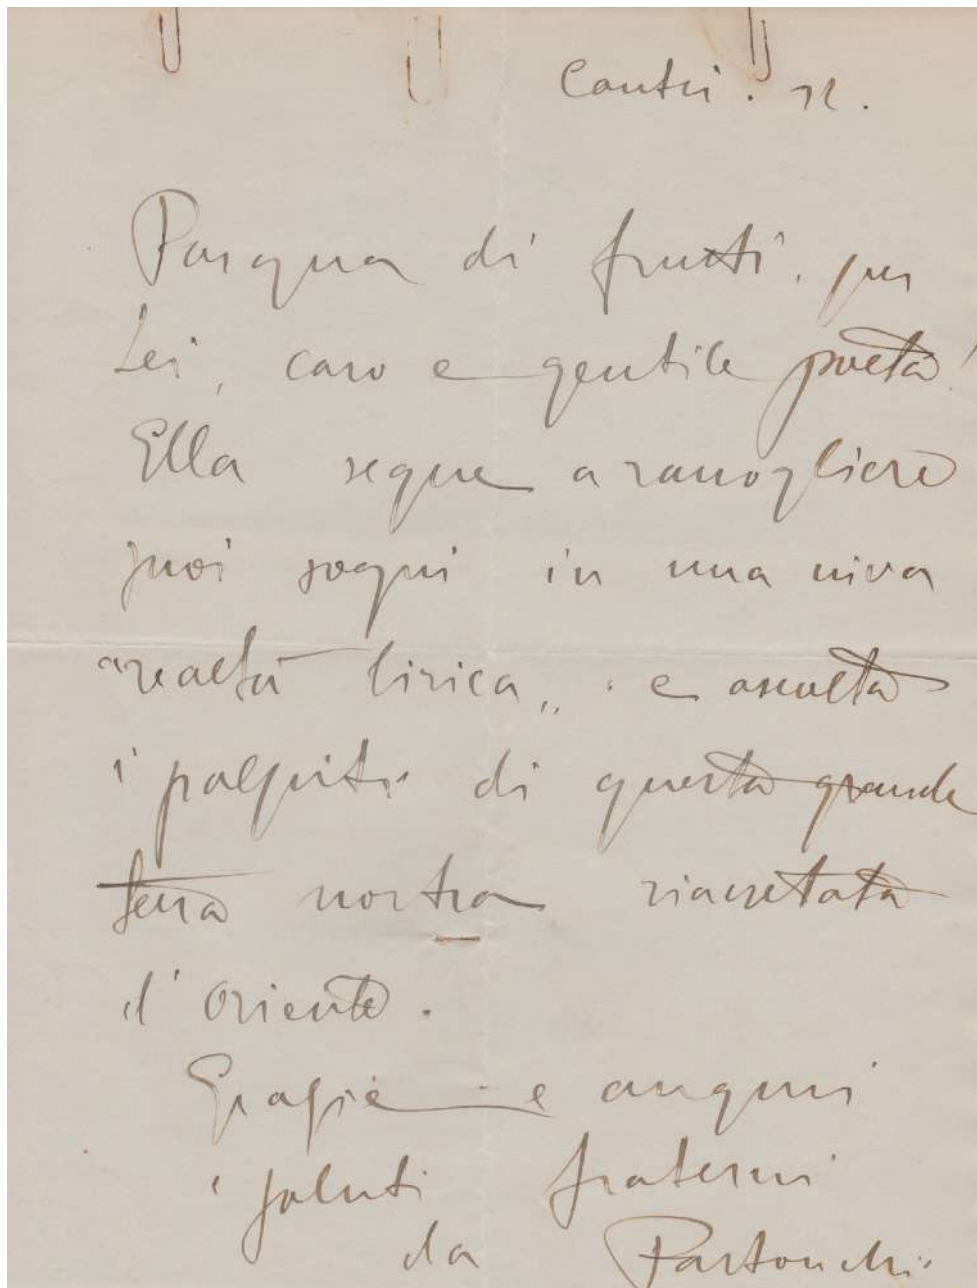 Pasqua di frutti. per
Lei, caro e gentile poeta!
Ella segue a
suoi sogni in una viva
"realtà lirica,, e ascolta
i palpiti di questa grande
terra nostra riassetata
d'Oriente.
Grazie e auguri
i saluti fraterni
da Pastonchi